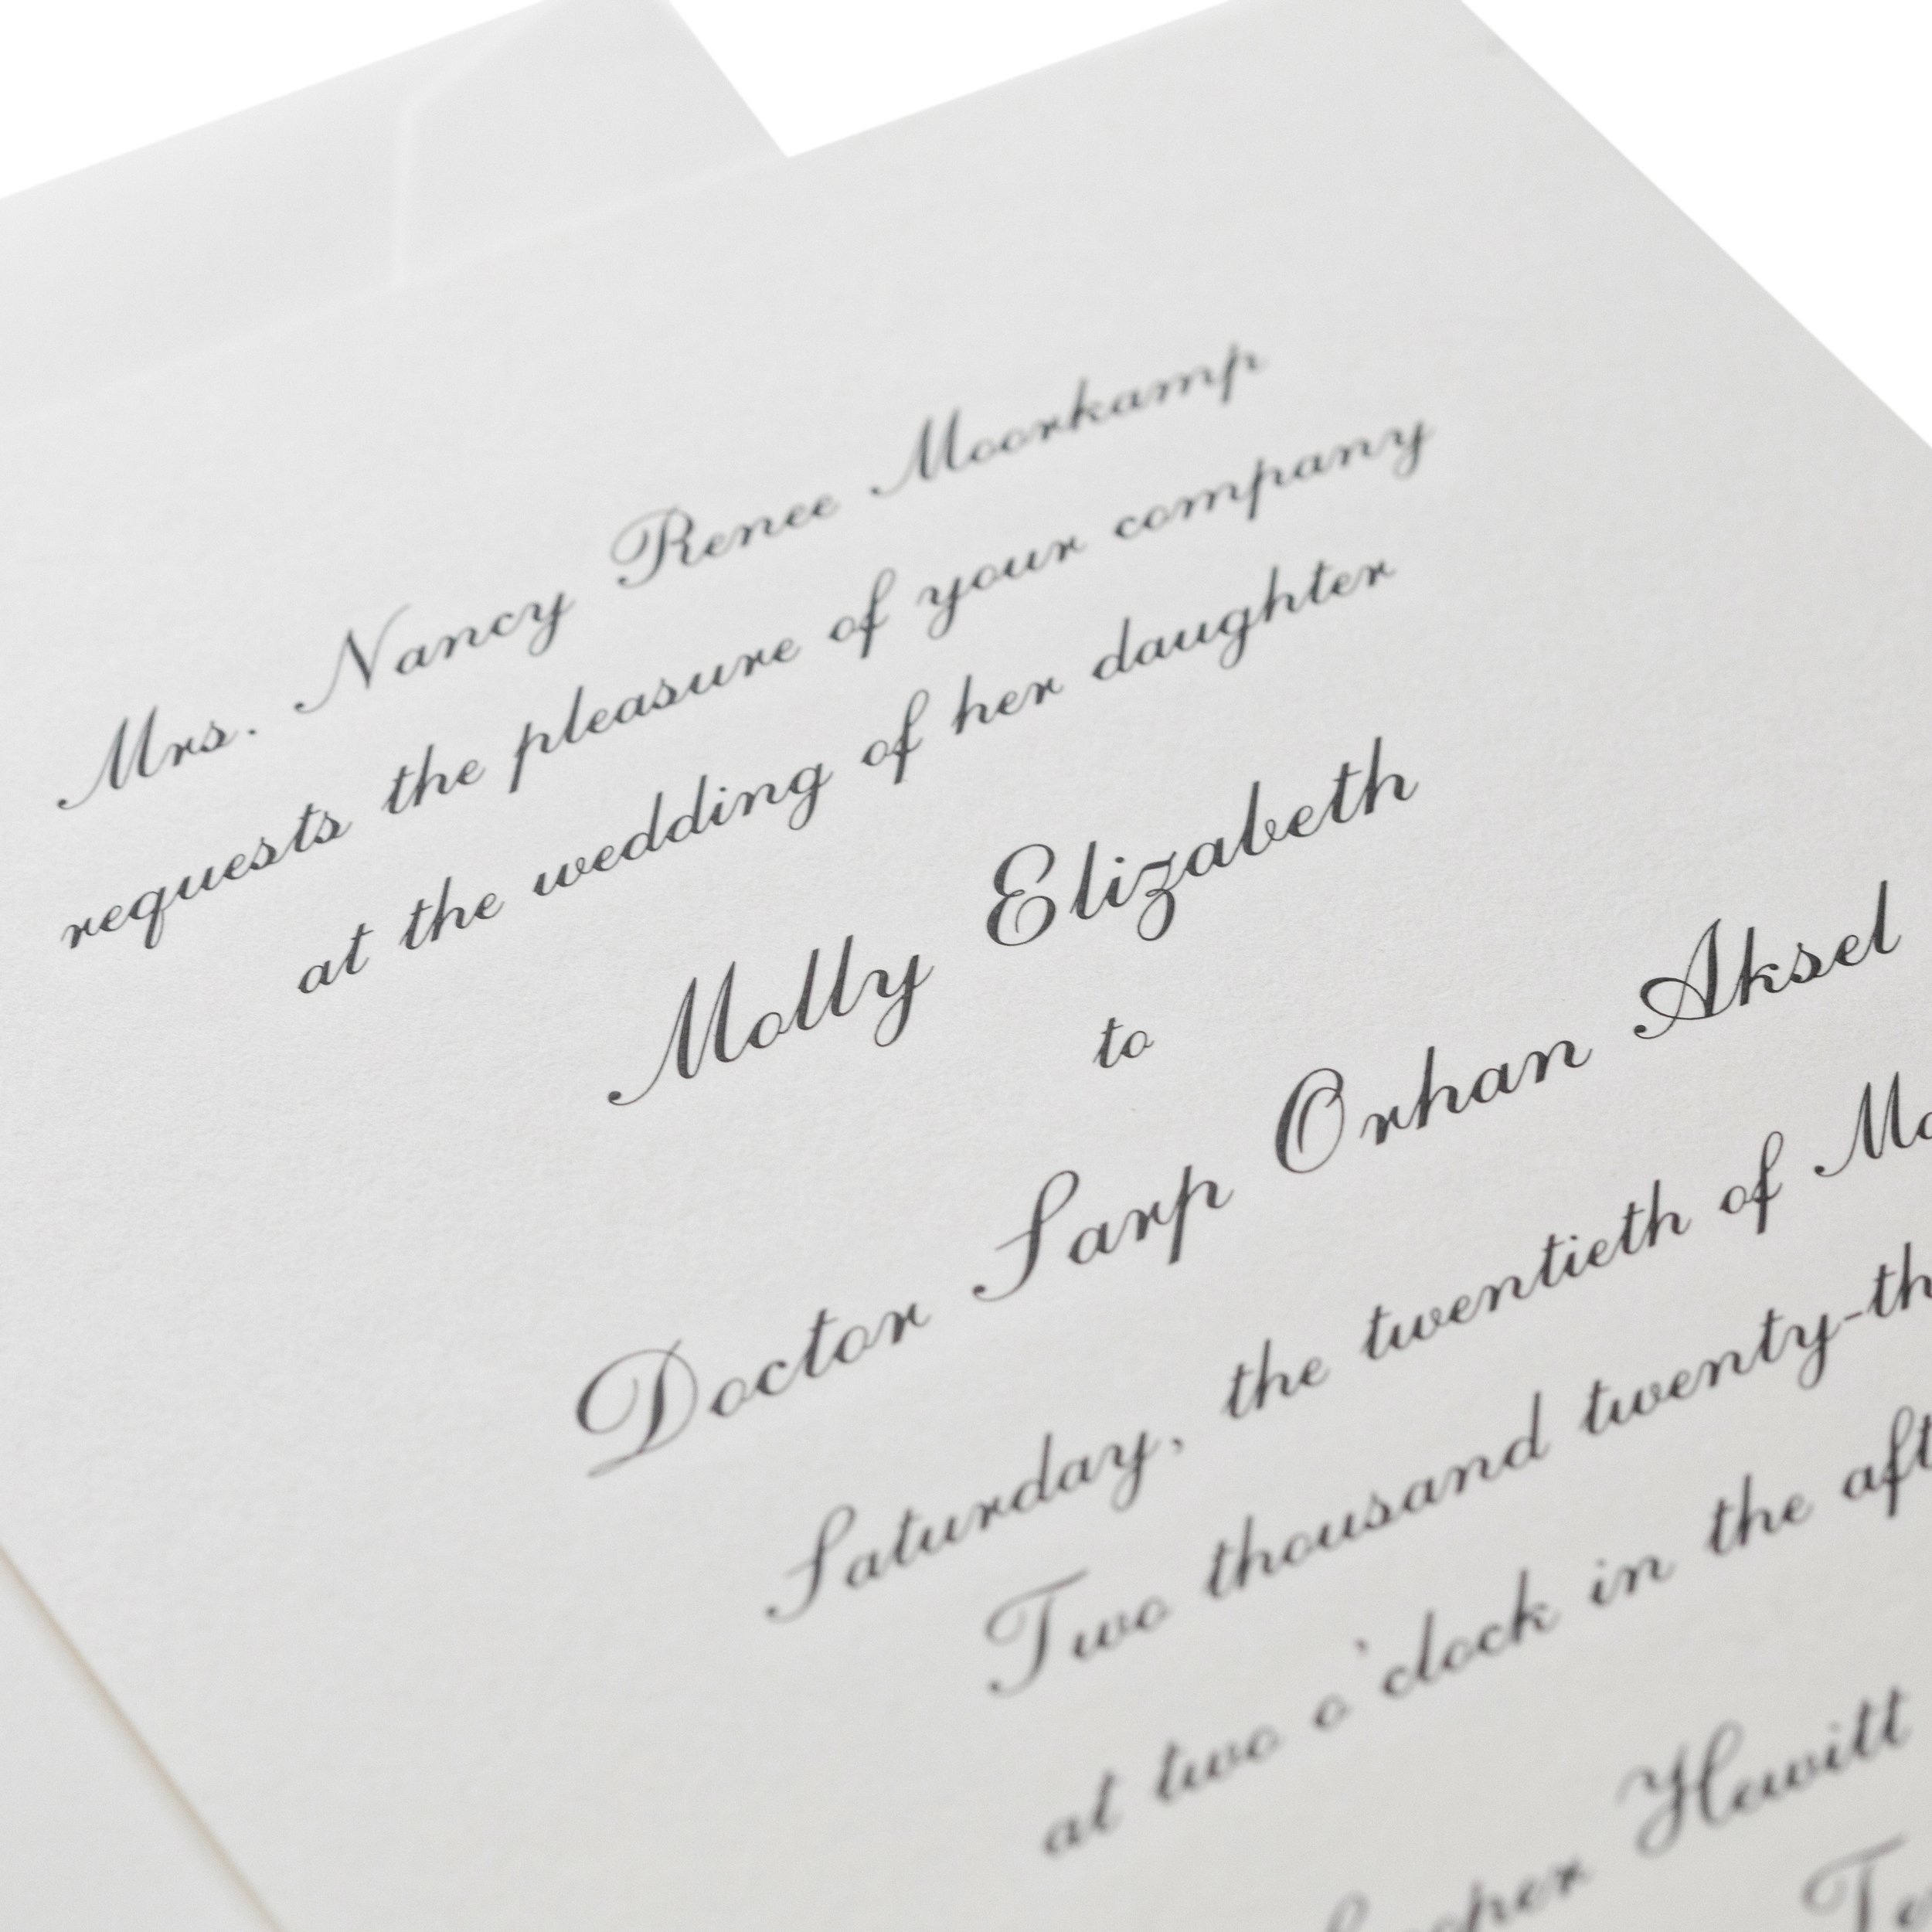 Mrs. Nancy Renee Moorkamp
requests the pleasure of your company
at the wedding of her daughter
Molly Elizabeth
to
Doctor Sarp Orhan Aksel
Saturday, the twentieth of
Two thousand twenty-th
at two o'clock in the aft
Hewitt